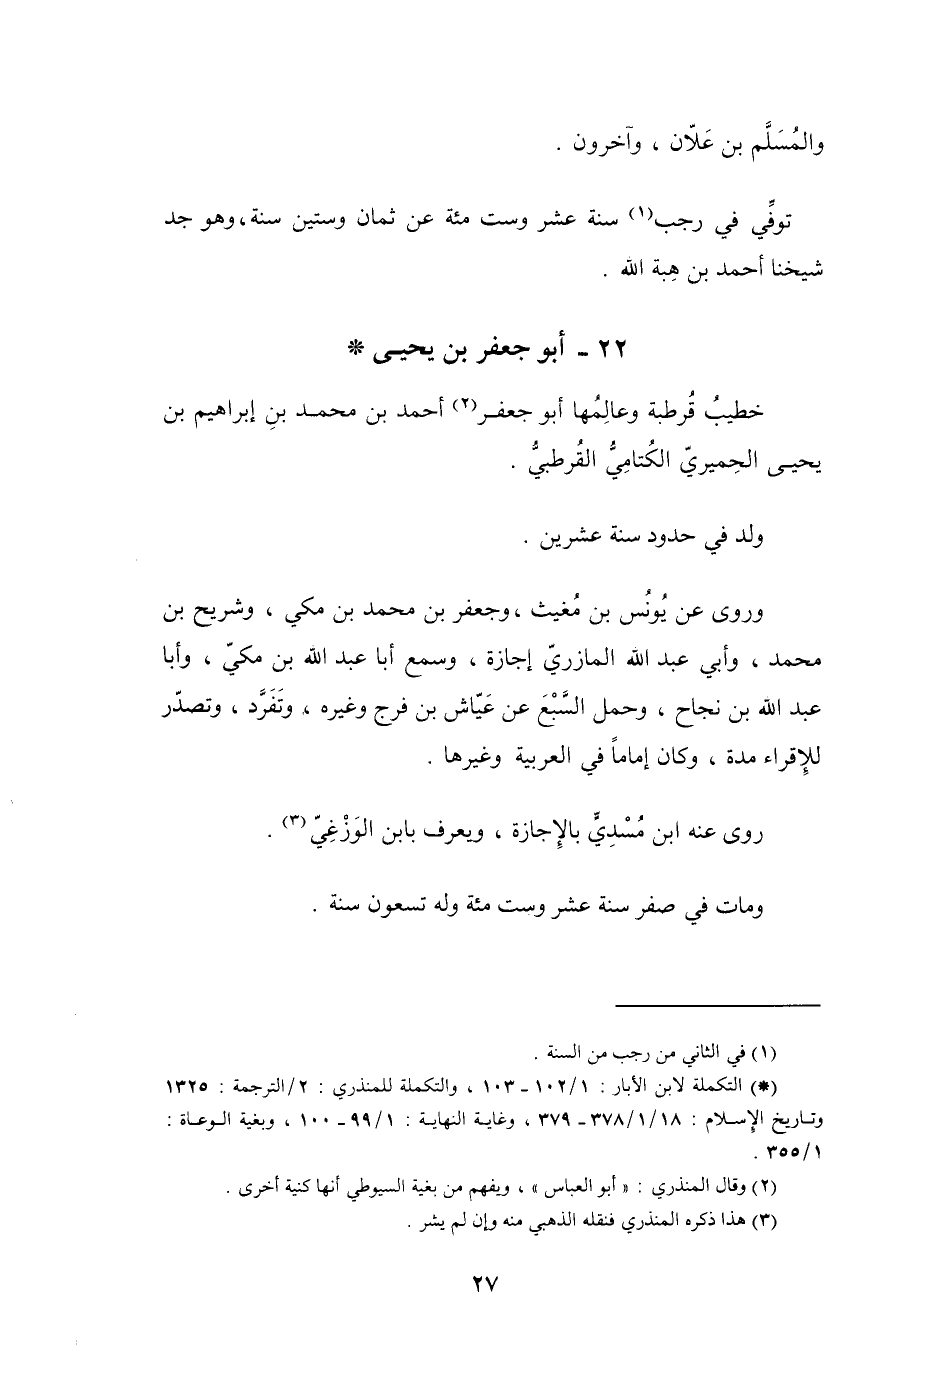 والمُسَلَّم بن عَلاّن ، وآخرون .
توفِّي في رجب(١) سنة عشر وست مئة عن ثمان وستين سنة،وهو جد
شيخنا أحمد بن هِبة الله .
٢٢ - أبو جعفر بن يحيـى *
خطيبُ قُرطبة وعالِمُها أبو جعفـر(٢) أحمد بن محمـد بنِ إبراهيم بن
يحيـى الحِميريّ الكُتامِيُّ القُرطبيُّ .
ولد في حدود سنة عشرين .
وروى عن يُونُس بن مُغيث ،وجعفر بن محمد بن مكي ، وشريح بن
محمد ، وأبي عبد الله المازريّ إجازة ، وسمع أبا عبد الله بن مكيّ ، وأبا
عبد الله بن نجاح ، وحمل السَّبْعَ عن عَيّاش بن فرج وغيره ، وتَفَرَّد ، وتصدّر
للإِقراء مدة ، وكان إماماً في العربية وغيرها .
روى عنه ابن مُسْدِيٍّ بالإِجازة ، ويعرف بابن الوَزْغِيّ(٣) .
ومات في صفر سنة عشر وست مئة وله تسعون سنة .
(١) في الثاني من رجب من السنة .
(*) التكملة لابن الأبار : ١٠٢/١ - ١٠٣ ، والتكملة للمنذري : ٢/الترجمة : ١٣٢٥
وتـاريخ الإِسـلام : ٣٧٨/١/١٨ - ٣٧٩ ، وغايـة النهايـة : ٩٩/١ - ١٠٠ ، وبغية الـوعـاة :
٣٥٥/١ .
(٢) وقال المنذري : « أبو العباس » ، ويفهم من بغية السيوطي أنها كنية أخرى .
(٣) هذا ذكره المنذري فنقله الذهبي منه وإن لم يشر .
٢٧